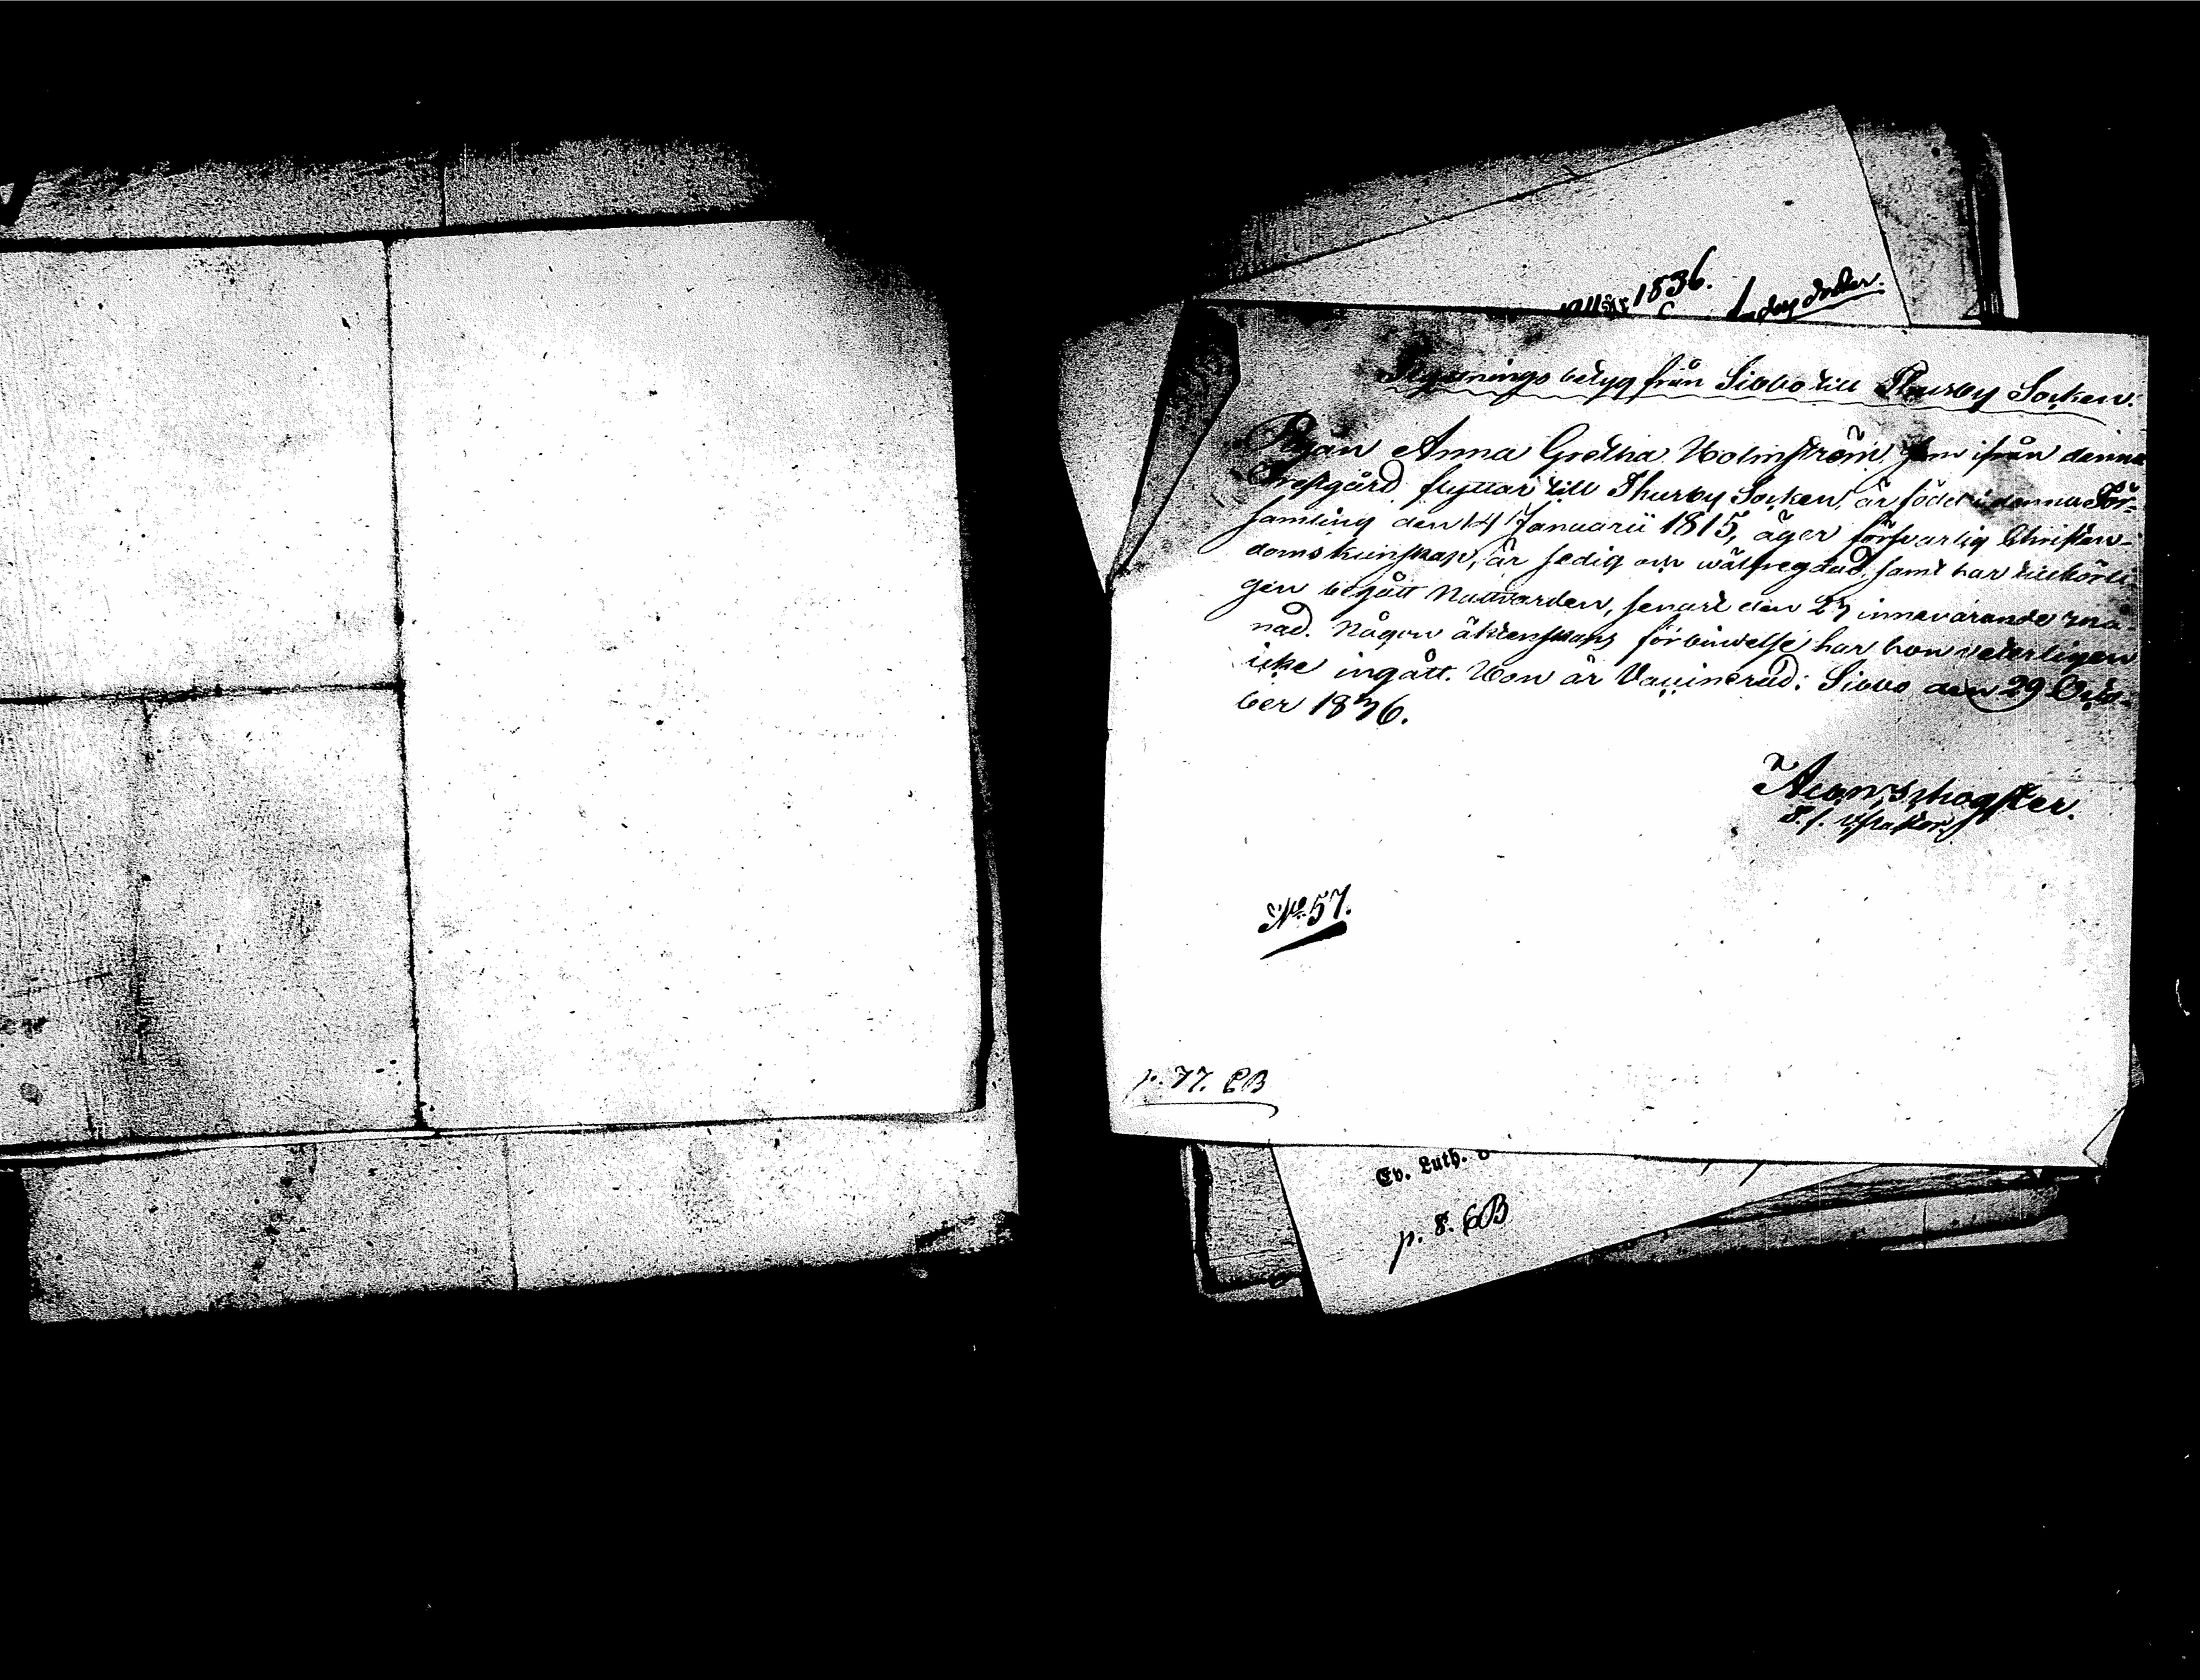 1836.
Flyttnings betyg från Sibbo till Thusby Socken.
Pigan Anna Gretha Holmström, som ifrån denna
Prestgård flyttar till Thusby Socken, är född i denna För-
samling den 14 Januarii 1815, äger försvarlig Christen-
doms kunskap, är sedig och wälfregdad, samt har tillbörli-
gen begått Nattvarden, senast den 23 innevarande må-
nad. Någon äktenskaps förbindelse har hon veterligen
icke ingått. Hon är Vaccinerad: Sibbo den 29 Octo-
ber 1836.
No 57.
p. 77. CB
Ev. Luth.
p. 8. CB